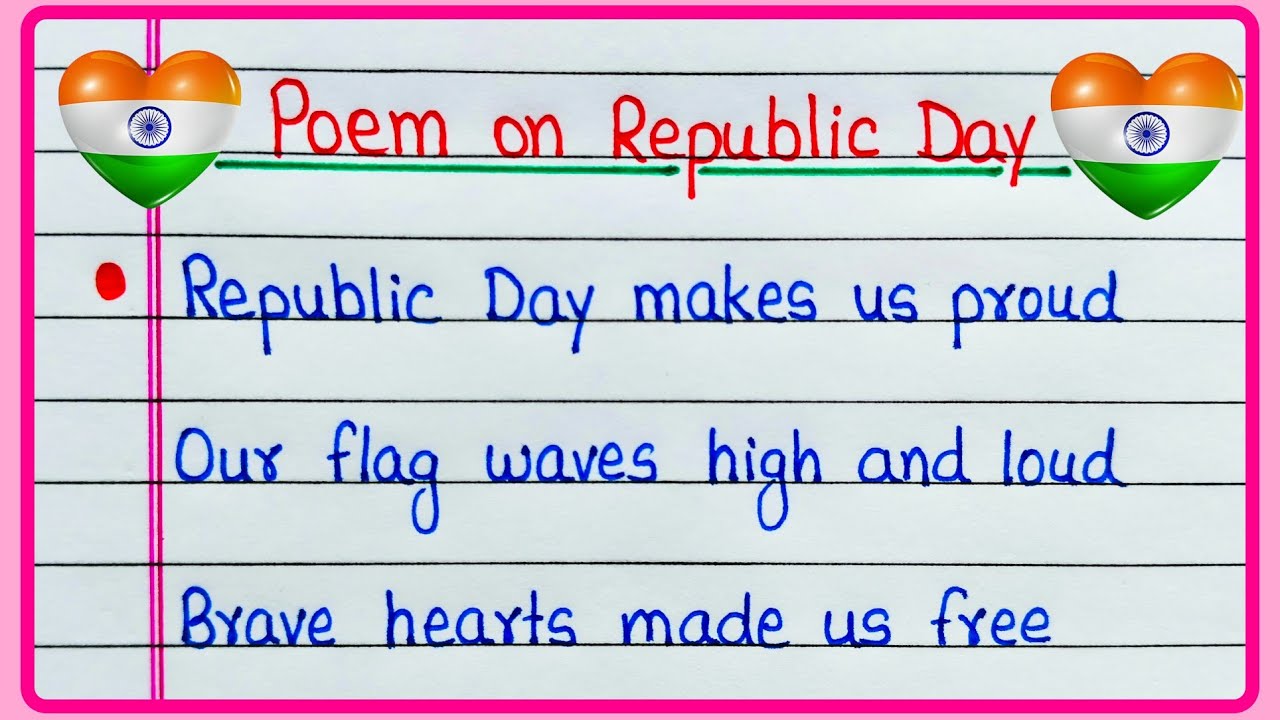 Poem on Republic Day
Republic Day makes us proud
Our flag waves high and loud
Brave hearts made us free